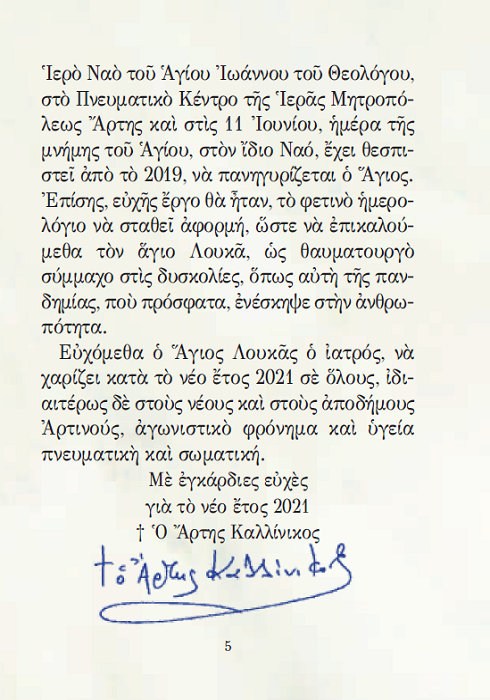 Ἱερὸ Ναὸ τοῦ Ἁγίου Ἰωάννου τοῦ Θεολόγου,
στὸ Πνευματικὸ Κέντρο τῆς Ἱερᾶς Μητροπό-
λεως Ἄρτης καὶ στὶς 11 Ἰουνίου, ἡμέρα τῆς
μνήμης τοῦ Ἁγίου, στὸν ἴδιο Ναό, ἔχει θεσπι-
στεῖ ἀπὸ τὸ 2019, νὰ πανηγυρίζεται ὁ Ἅγιος.
Ἐπίσης, εὐχῆς ἔργο θὰ ἦταν, τὸ φετινὸ ἡμερο-
λόγιο νὰ σταθεῖ ἀφορμή, ὥστε νὰ ἐπικαλού-
μεθα τὸν ἅγιο Λουκᾶ, ὡς θαυματουργὸ
σύμμαχο στὶς δυσκολίες, ὅπως αὐτὴ τῆς παν-
δημίας, ποὺ πρόσφατα, ἐνέσκηψε στὴν ἀνθρω-
πότητα.
Εὐχόμεθα ὁ Ἅγιος Λουκᾶς ὁ ἰατρός, νὰ
χαρίζει κατὰ τὸ νέο ἔτος 2021 σὲ ὅλους, ἰδι-
αιτέρως δὲ στοὺς νέους καὶ στοὺς ἀποδήμους
Ἀρτινούς, ἀγωνιστικὸ φρόνημα καὶ ὑγεία
πνευματικὴ καὶ σωματική.
Μὲ ἐγκάρδιες εὐχὲς
γιὰ τὸ νέο ἔτος 2021
† Ὁ Ἄρτης Καλλίνικος
† ὁ Ἄρτης Καλλίνικος
5